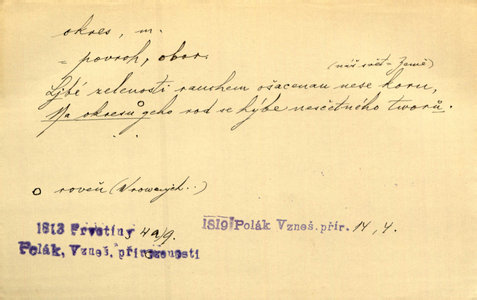 okres, m.
= povrch, obor.
(náš svět = Země)
Ljbé zelenosti rauchem ošacenau nese koru,
Na okresu geho rod se hýbe nesčetného tworů.
o roveň (Srown. gich..)
1813 Prvotiny 49/9.
Polák, Vzneš. přirozenosti
1819 Polák Vzneš. přír. 14, 4.